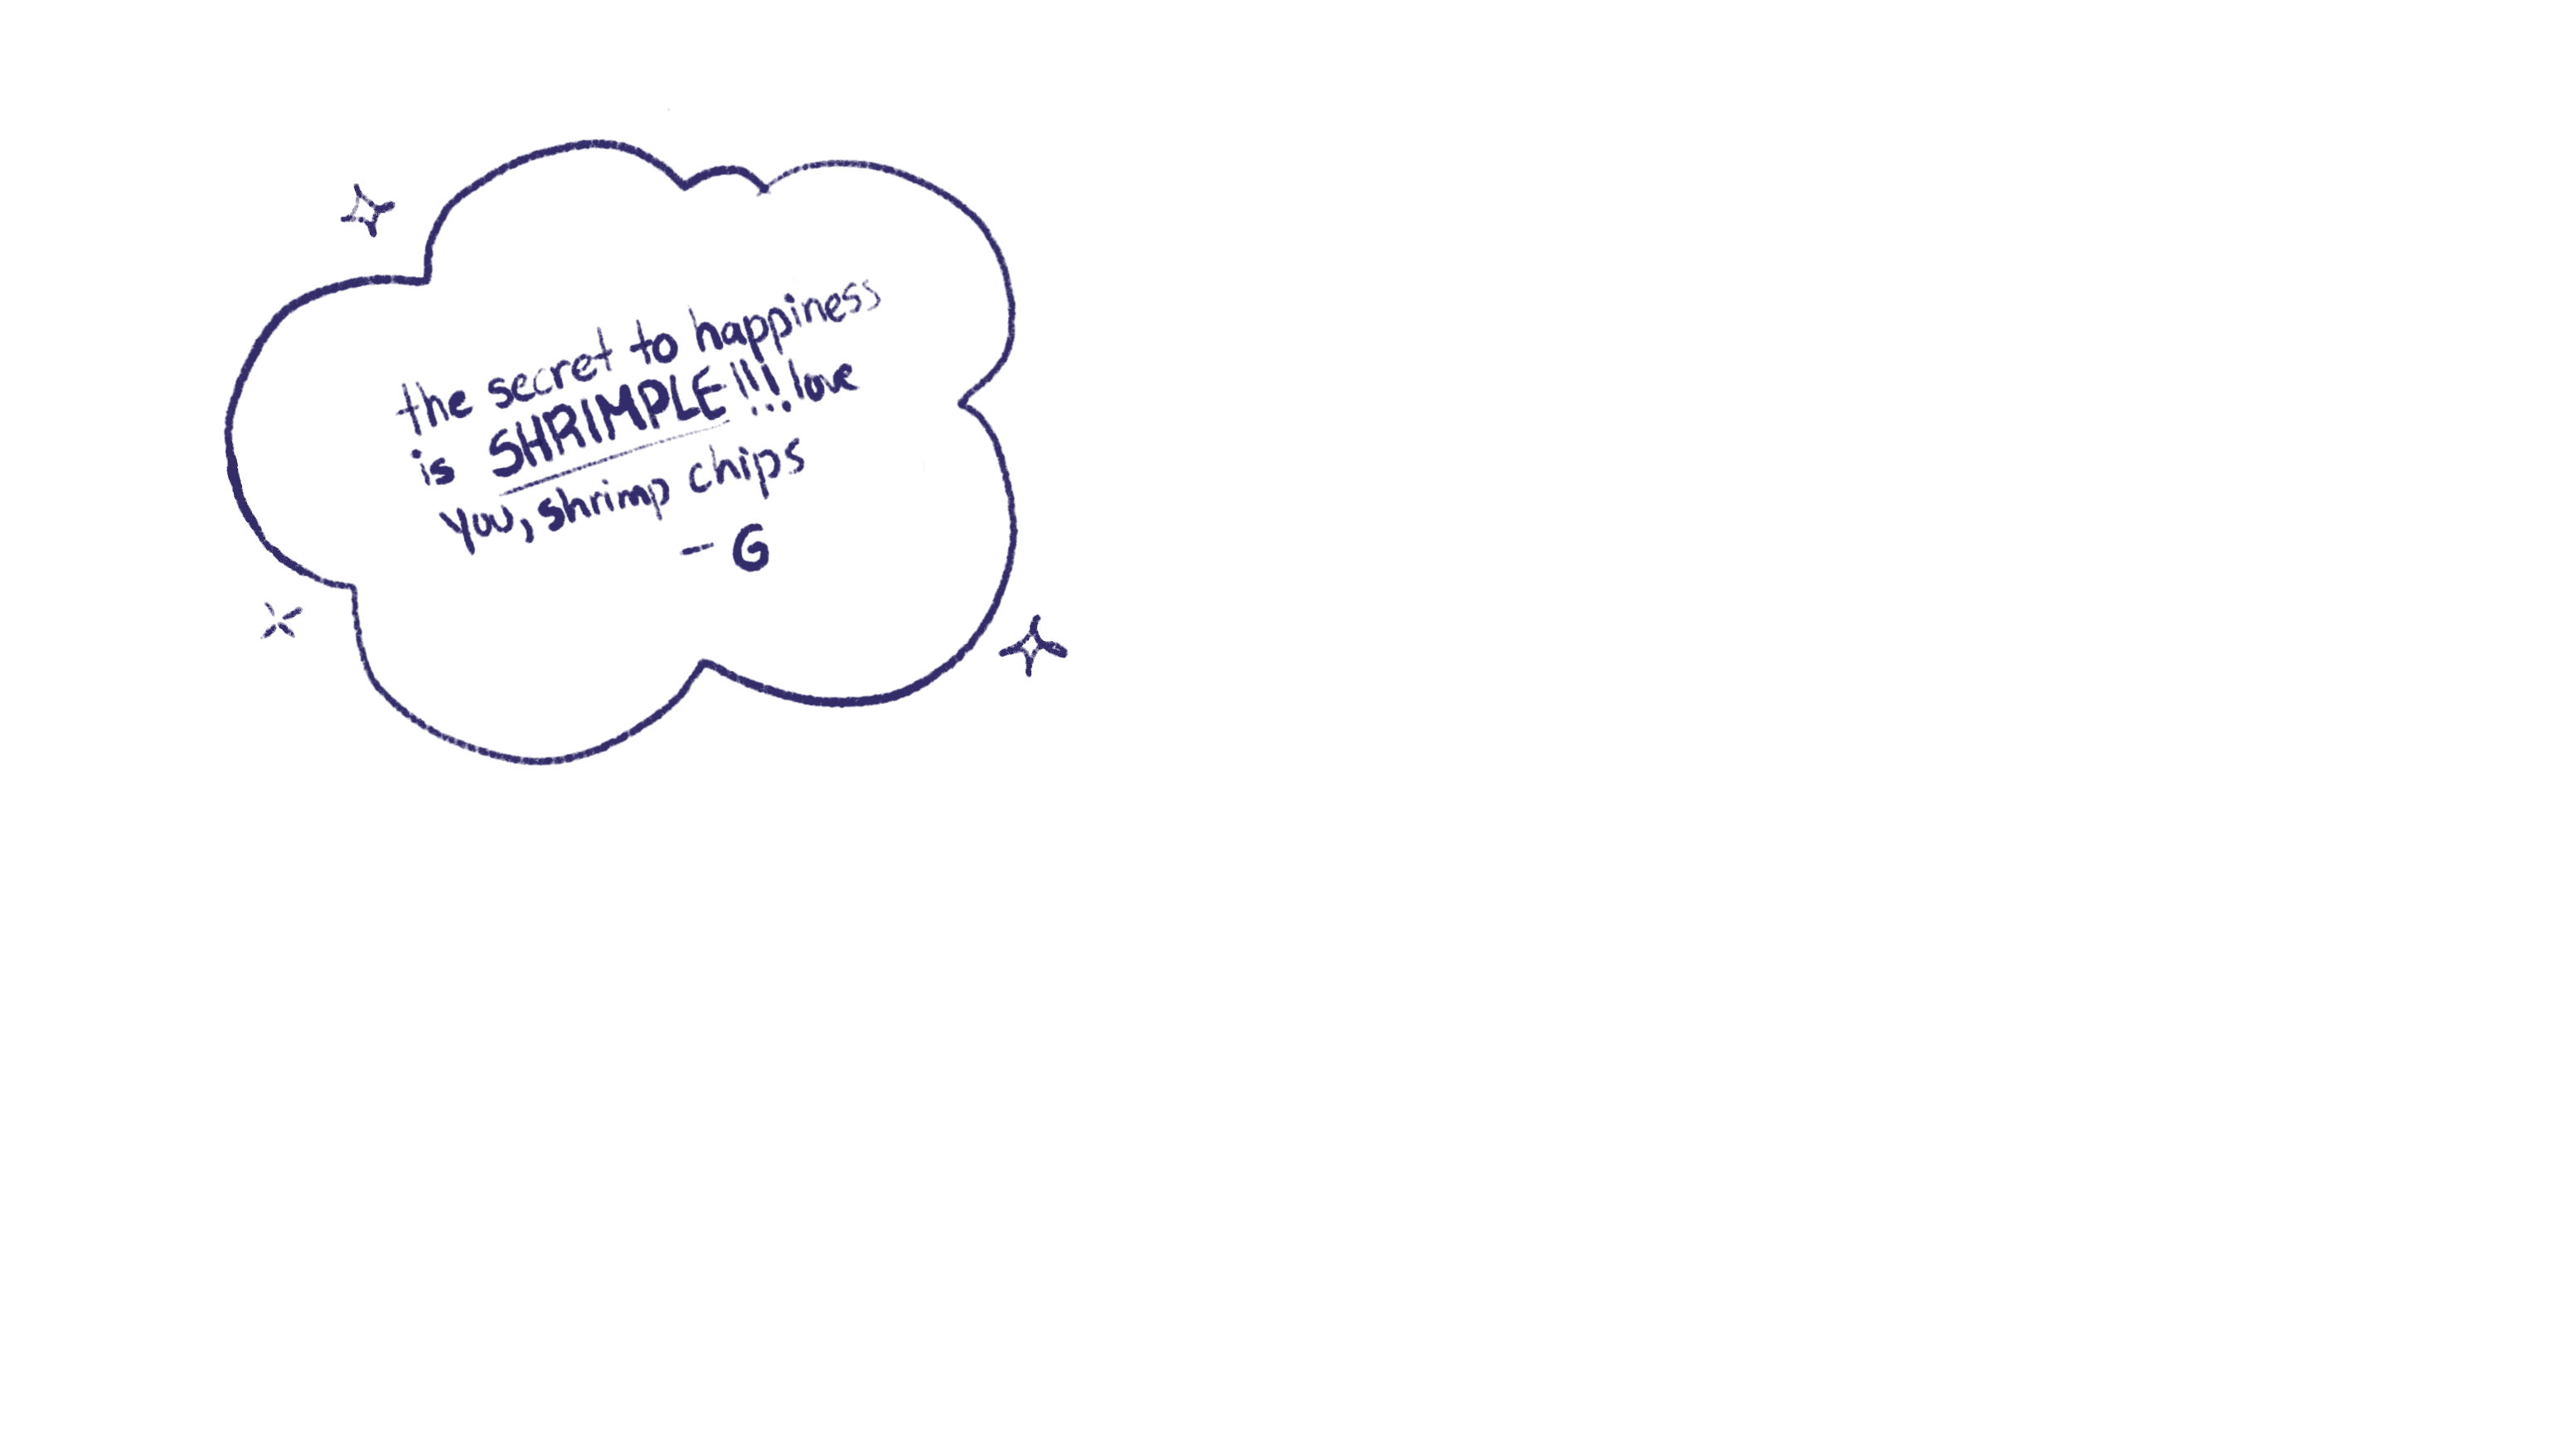 the secret to happiness
is SHRIMPLE!!! love
you, shrimp chips
- G